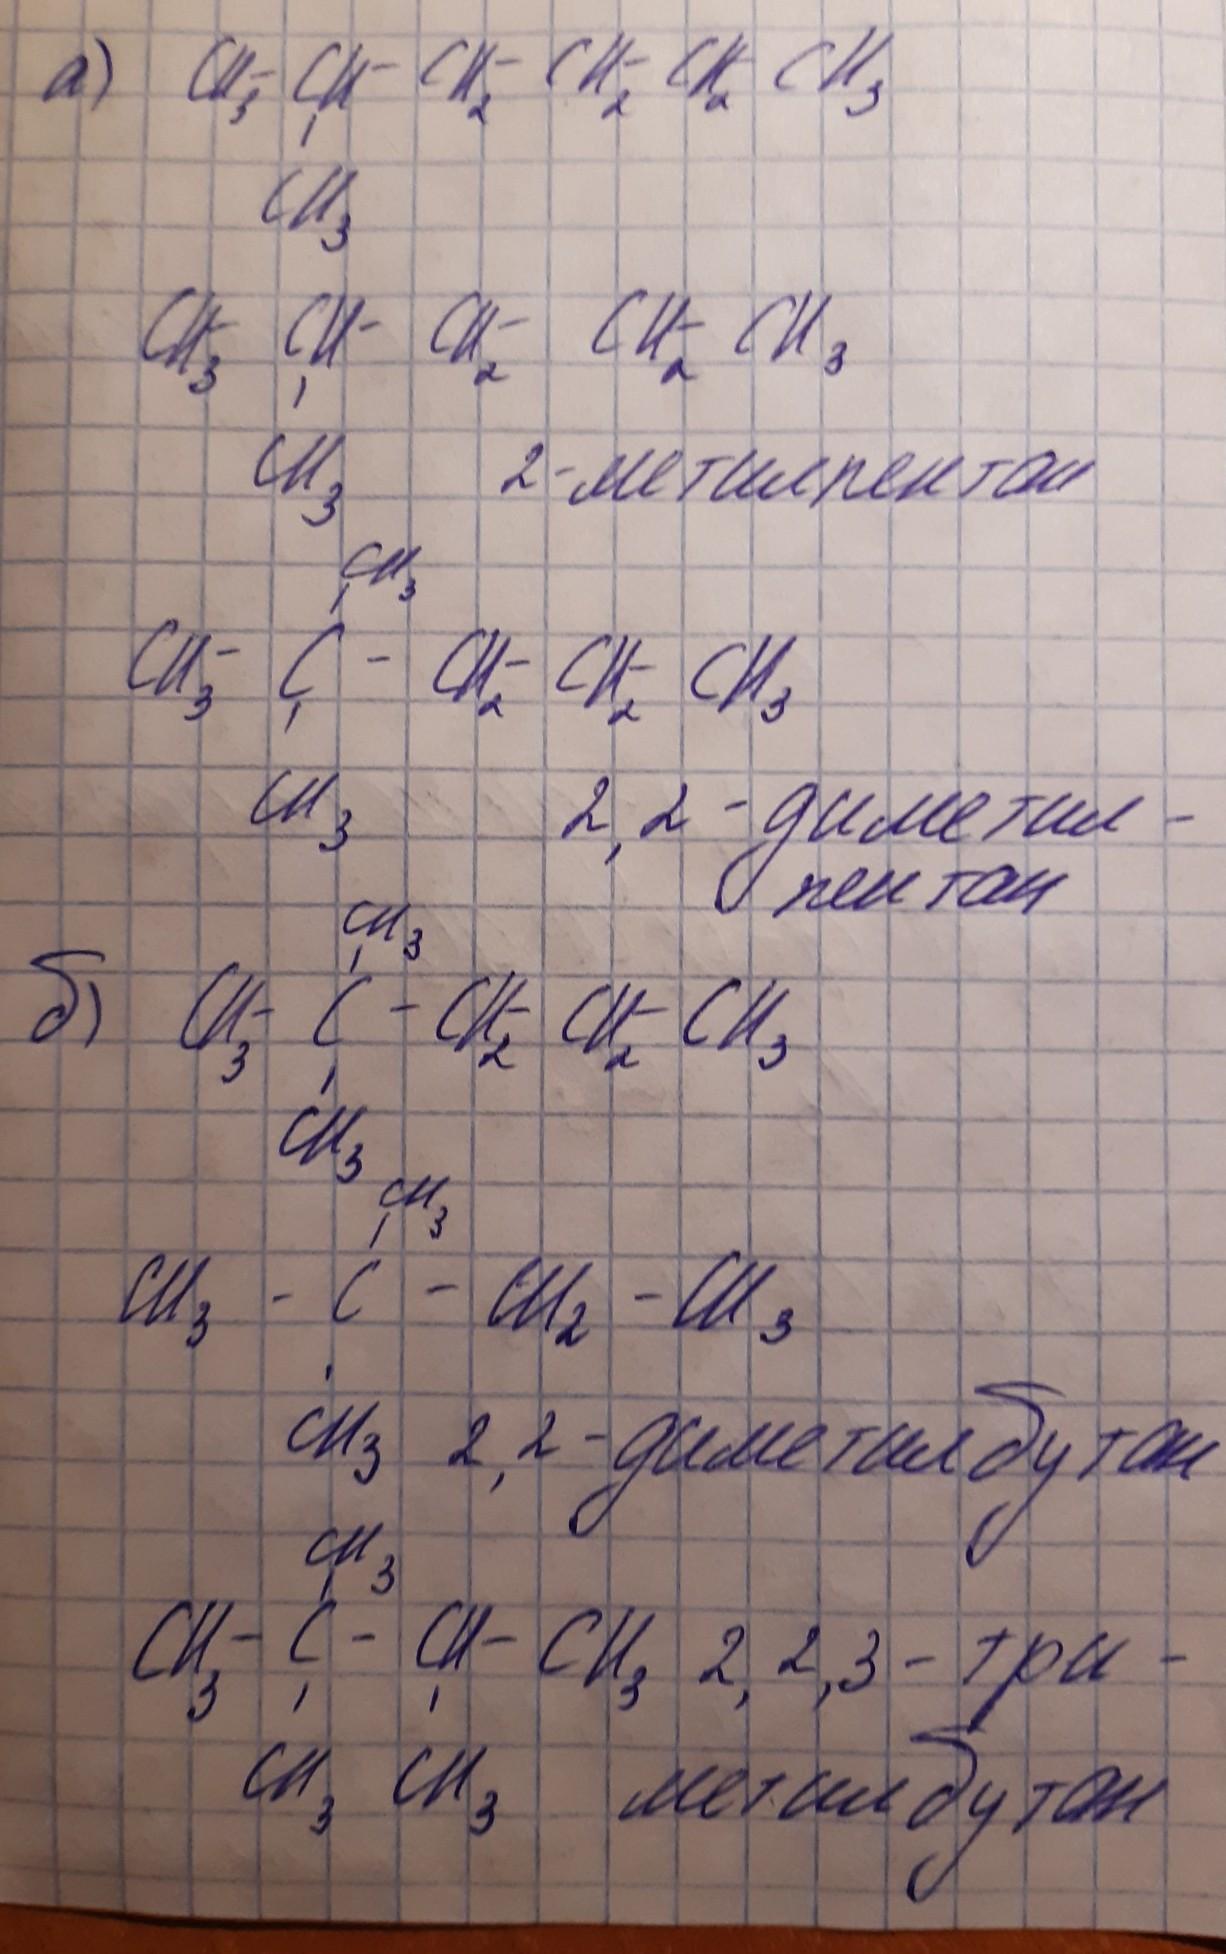 а) CH3- CH- CH2- CH2- CH2- CH3
CH3
CH3- CH- CH2- CH2- CH3
CH3 2-метилпентан
CH3
CH3- C - CH2- CH2- CH3
CH3 2,2-диметил-
пентан
CH3
б) CH3- C - CH2- CH2- CH3
CH3
CH3
CH3 - C - CH2 - CH3
CH3 2,2-диметилбутан
CH3
CH3- C - CH- CH3 2,2,3-три-
CH3 CH3 метилбутан